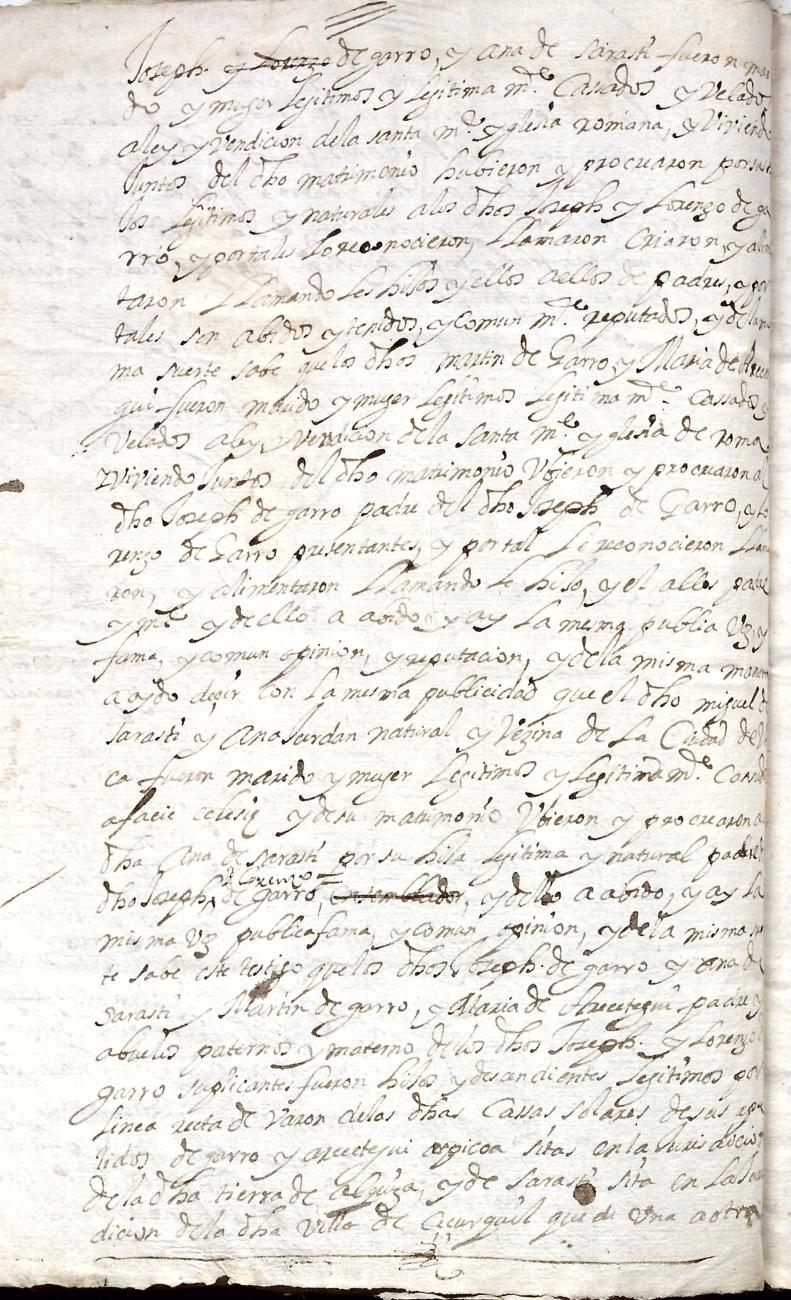 Joseph y Lorenzo de garro, y Ana de Sarasti fueron mari
do y muger Legitimos y Legitima mte Cassados y Velados
a ley y Vendicion dela santa me yglesia romana, y Viviendo
Juntos del dho matrimonio hubieron y procrearon por sus
los Legitimos y naturales alos dhos Joseph y Lorenzo de ga
rro, y por tales Lo reconocieron, LLamaron Criaron, y alim
taron LLamando Les hisos y ellos a ellos de padres, y por
tales son abidos y tenidos, y comun mte reputados, y de la mis
ma suerte sabe que los dhos martin de Garro, y Maria de Arece
gui fueron marido y muger Legitimos Legitima mte Cassados y
Velados a ley, y Vendicion de la santa me yglesia de roma
y Viviendo Juntos del dho matrimonio Vbieron y procrearon al
dho Joseph de garro padre del dho Joseph de Garro, y Lo
renzo de Garro presentantes, y por tal Le reconocieron LLama
ron, y alimentaron LLamando Le hiso, y el a llos padre
y me y de ello a abido y ay La mesma publia Vz, y
fama, y comun opinion, y reputacion, y de la misma manera
a oydo deçir con La mesma publicidad que el dho miguel de
Sarasti y Ana Jurdan natural y Vezina de La Ciudad de
ca fueron marido y muger Legitimos y Legitima mte Cassad
a facie eclesie y de su matrimonio Vbieron y procrearon a
dha Ana de Sarasti por su hisa Legitima y natural padre
y Lorenzo
dho Joseph, de garro, ensemblador, y dello a abido, y ay La
misma Vz publica fama, y comun opinion, y de la misma su
te sabe este testigo que los dhos Joseph de garro y Ana de
Sarasti y Martin de garro, y Maria de Arecetegui padre y
abuelos paternos y materno de los dhos Joseph y Lorenzo
garro suplicantes fueron hisos y desendientes Legitimos por
Linea recta de Varon delos dhas Cassas solares de sus ape
llidos de garro y arecetegui aspicoa sitas en la Jurisdicion
de la dha tierra de alquiza, y de Sarasti sita en La Juris
dicion de la dha Villa de Cicurquil que de Una a otra